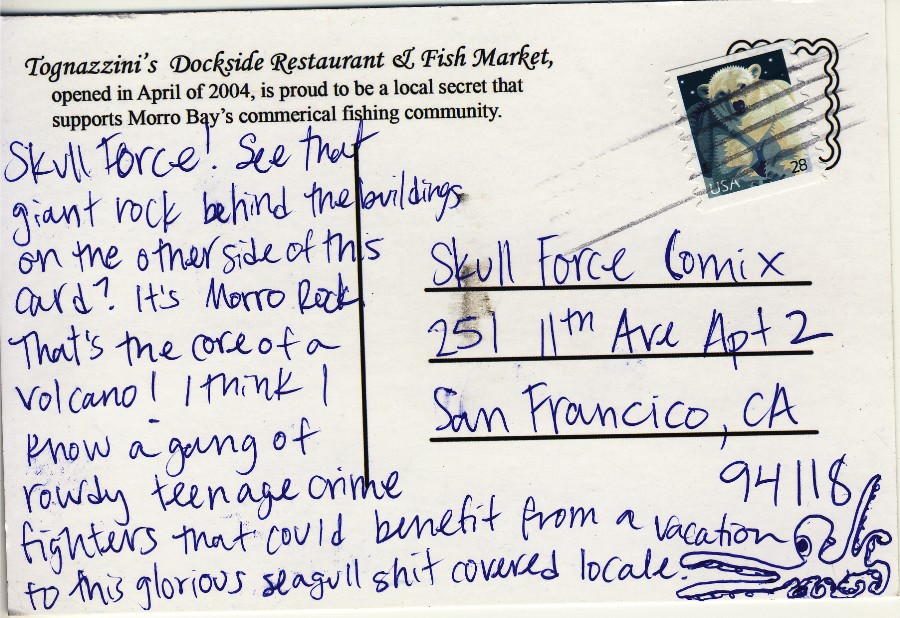 Tognazzini's Dockside Restaurant & Fish Market,
opened in April of 2004, is proud to be a local secret that
supports Morro Bay's commerical fishing community.
USA 28
Skull Force! See that
giant rock behind the buildings
on the other side of this
card? It's Morro Rock
That's the core of a
volcano! I think I
know a gang of
rowdy teenage crime
fighters that could benefit from a vacation
to this glorious seagull shit covered locale.
Skull Force Comix
251 11th Ave Apt 2
San Francico, CA
94118